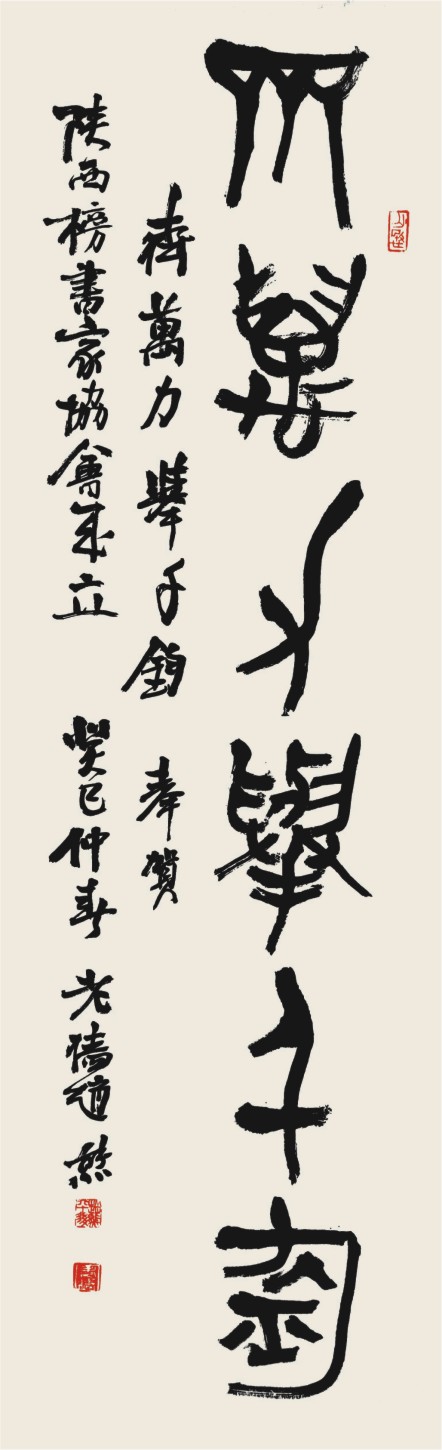 齊萬力舉千鈞
齊萬力舉千鈞 奉賀
陝西榜書家協會成立 癸巳仲春 老